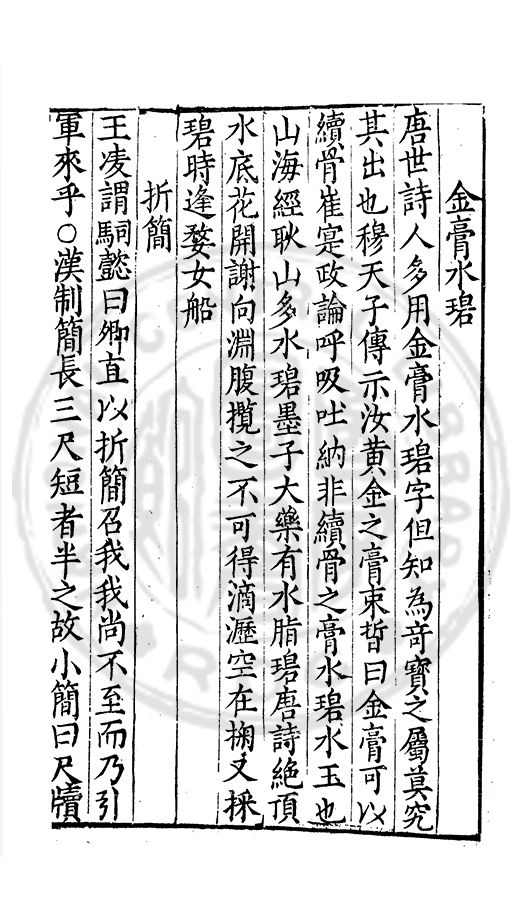 金膏水碧
唐世詩人多用金膏水碧字但知為奇寶之屬莫究
其出也穆天子傳示汝黃金之膏束晳曰金膏可以
續骨崔寔政論呼吸吐納非續骨之膏水碧水玉也
山海經耿山多水碧墨子大藥有水脂碧唐詩絶頂
水底花開謝向淵腹攬之不可得滴瀝空在掬又採
碧時逢婺女船
折簡
王凌謂駉懿曰卿直以折簡召我我尚不至而乃引
軍來乎○漢制簡長三尺短者半之故小簡曰尺牘